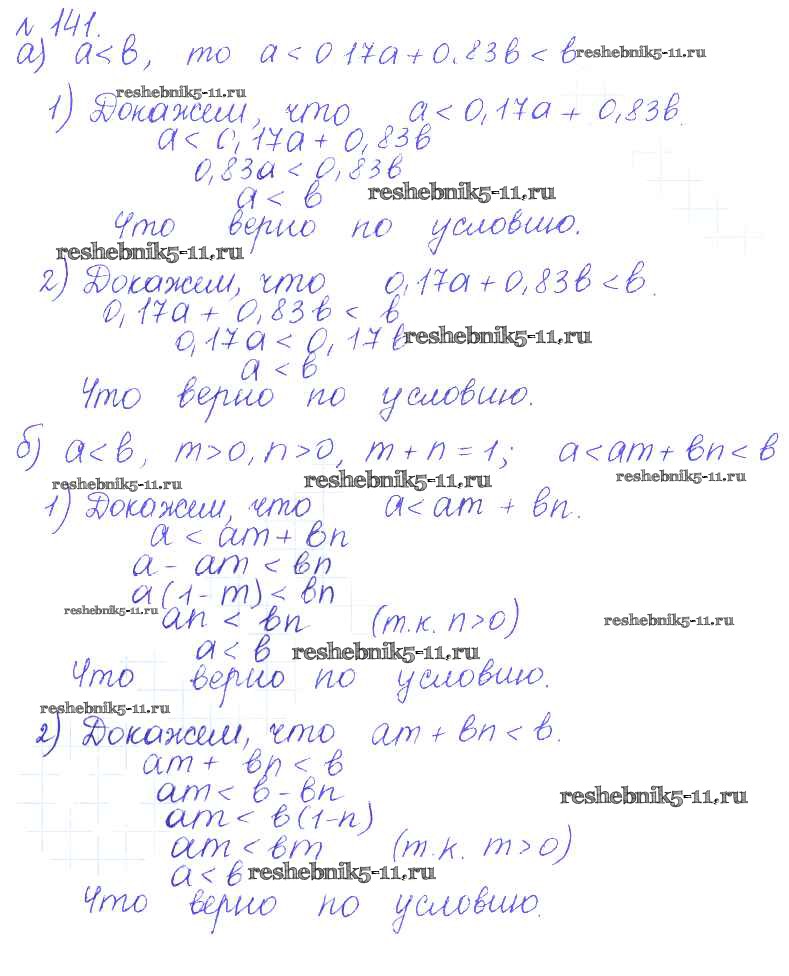 № 141.
а) a < b, то a < 0.17a + 0.83b < b reshebnik5-11.ru
reshebnik5-11.ru
1) Докажем, что a < 0,17a + 0,83b.
a < 0,17a + 0,83b
0,83a < 0,83b
a < b reshebnik5-11.ru
Что верно по условию.
reshebnik5-11.ru
2) Докажем, что 0,17a + 0,83b < b.
0,17a + 0,83b < b
0,17a < 0,17b reshebnik5-11.ru
a < b
Что верно по условию.
б) a < b, m > 0, n > 0, m + n = 1; a < am + bn < b
reshebnik5-11.ru reshebnik5-11.ru reshebnik5-11.ru
1) Докажем, что a < am + bn.
a < am + bn
a - am < bn
a(1 - m) < bn
reshebnik5-11.ru an < bn (т.к. n > 0) reshebnik5-11.ru
a < b reshebnik5-11.ru
Что верно по условию.
reshebnik5-11.ru
2) Докажем, что am + bn < b.
am + bn < b
am < b - bn reshebnik5-11.ru
am < b(1-n)
am < bm (т.к. m > 0)
a < b reshebnik5-11.ru
Что верно по условию.